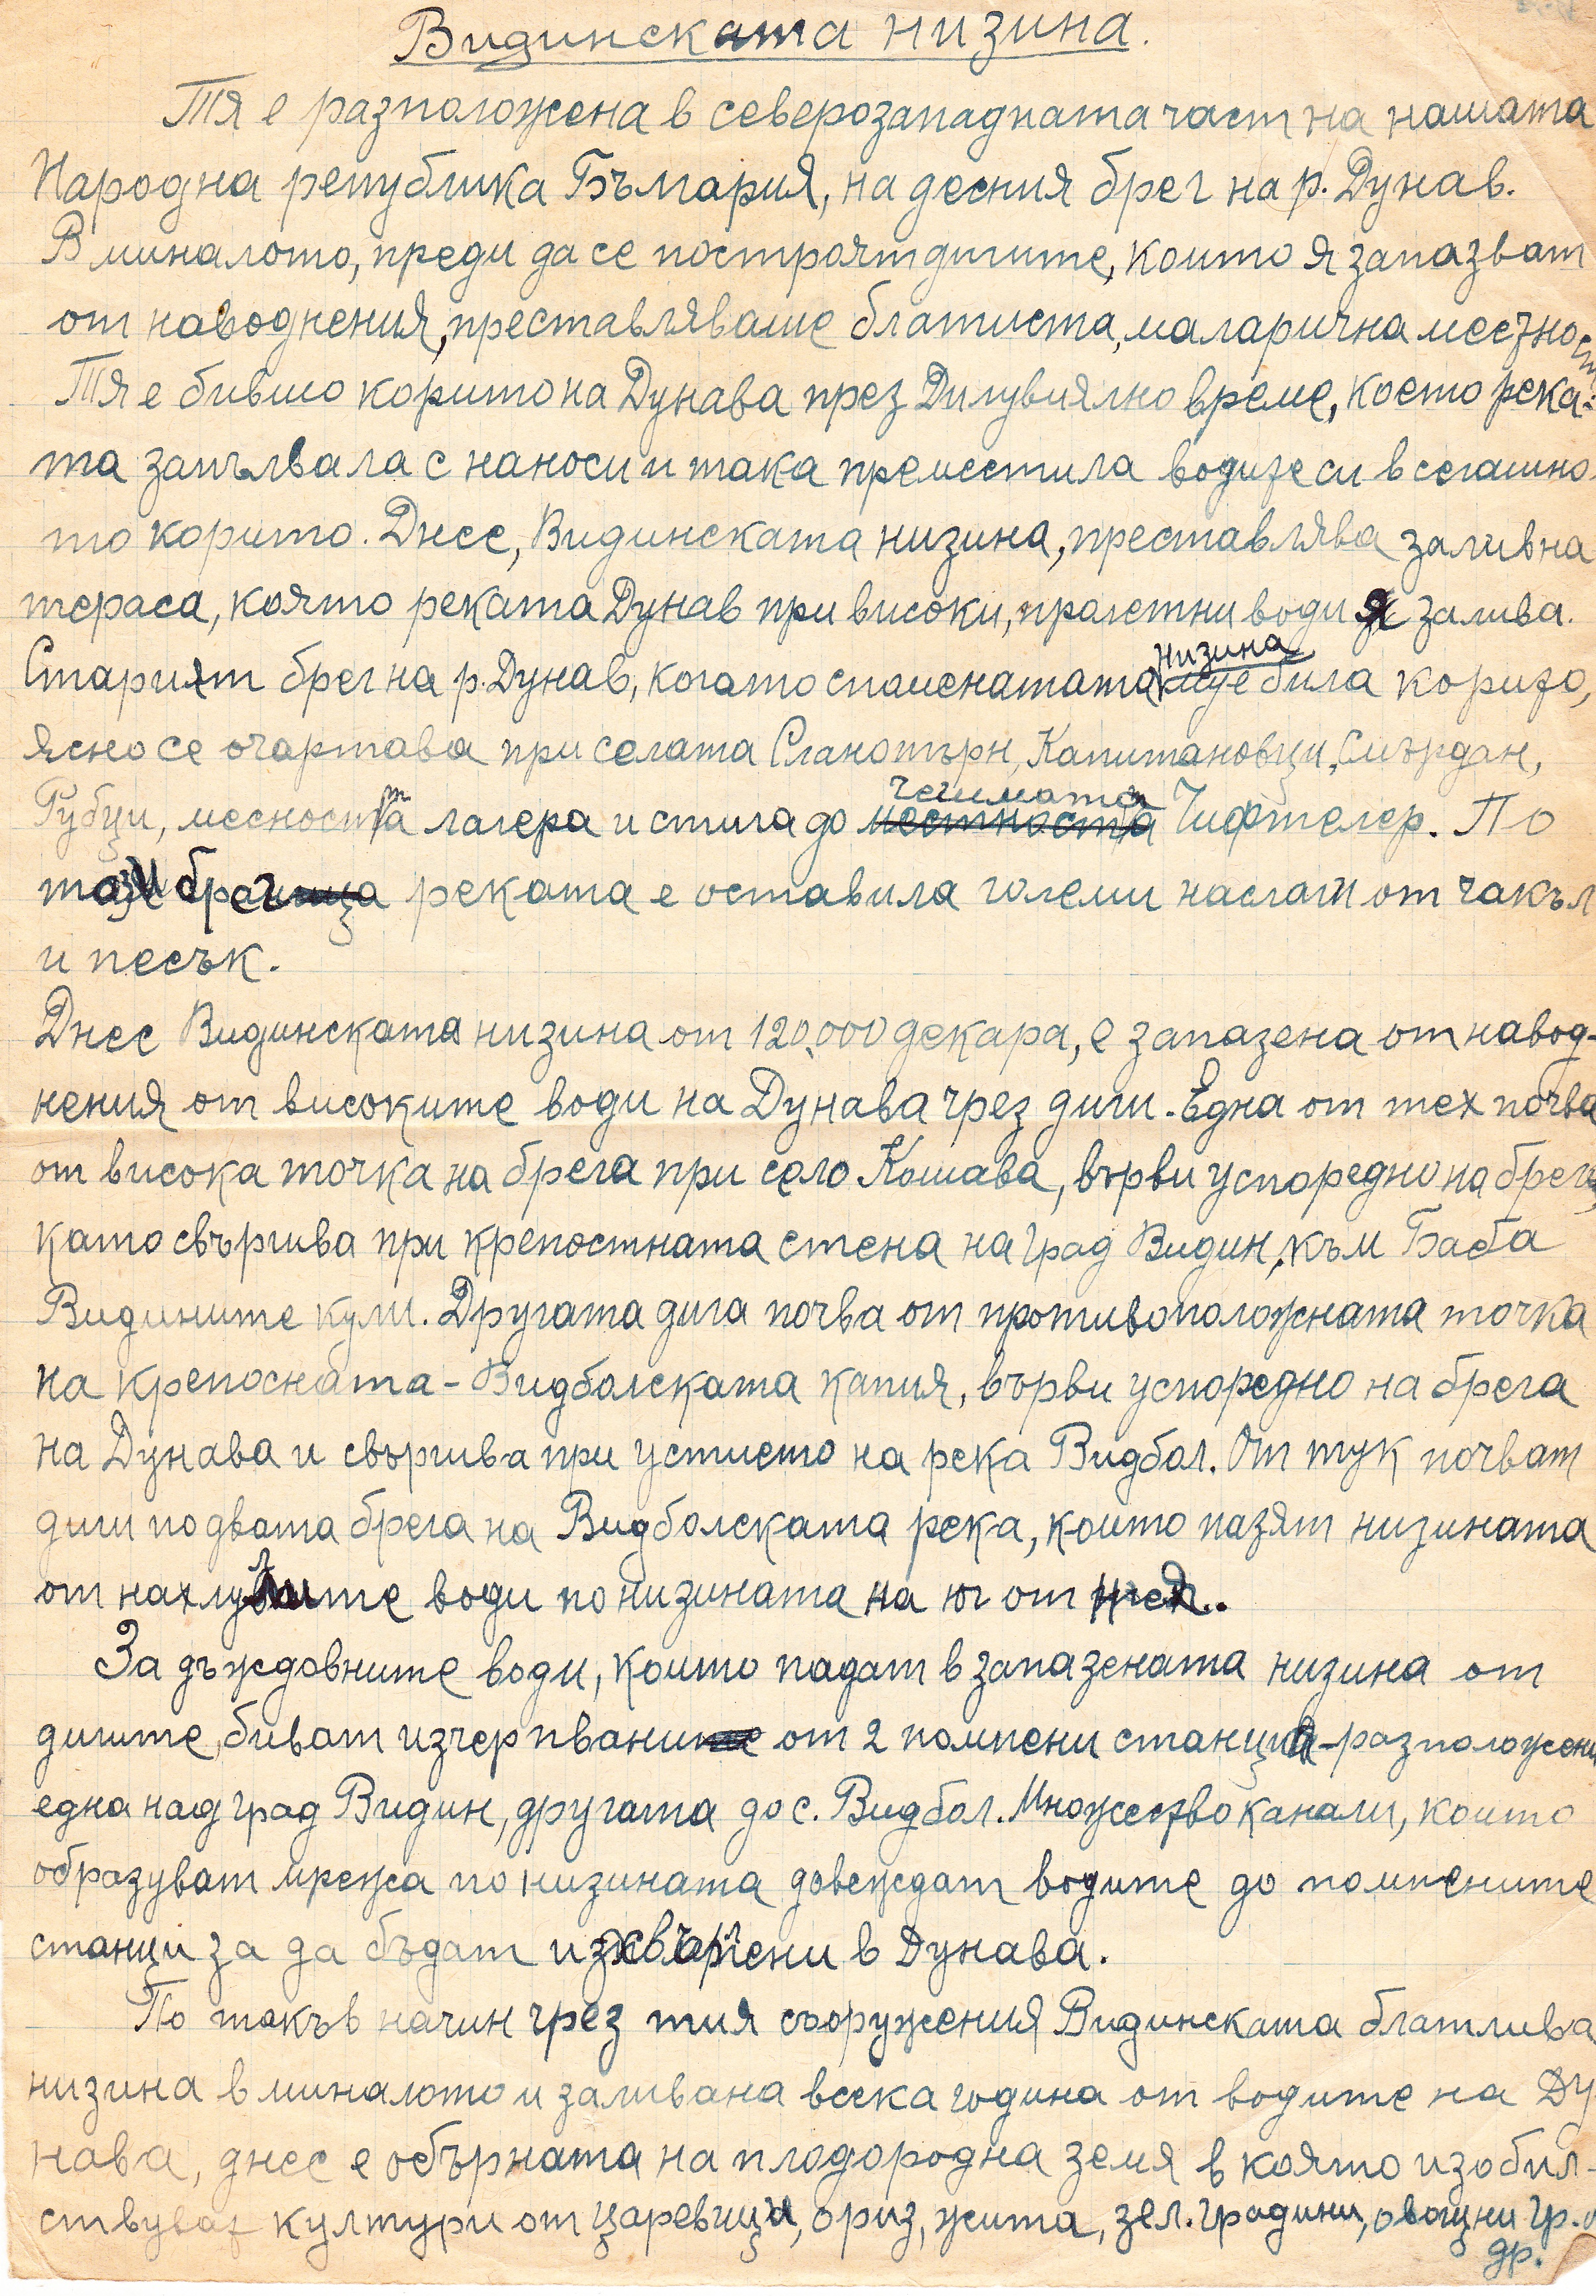 Видинската низина.
Тя е разположена в северозападната част на нашата
Народна република България, на десния брег на р. Дунав.
В миналото, преди да се построят дигите, които я запазват
от наводнения, преставляваше блатиста, маларична месност
Тя е бившо корито на Дунава през Дилувиялно време, което река-
та запълвала с наноси и така преместила водите си в сегашно-
то корито. Днес, Видинската низина, преставлява заливна
тераса, която реката Дунав при високи, пролетни води я залива.
Старият брег на р. Дунав, когато споменатата низина е била корито,
ясно се очартава при селата Сланотърн, Капитановци, Смърдан,
Губци, месността лагера и стига до чешмата Чифтелер. По
този бряг реката е оставила големи наслаги от чакъл
и песък.
Днес Видинската низина от 120.000 декара, е запазена от навод-
нения от високите води на Дунава чрез диги. Една от тех почва
от висока точка на брега при село Кошава, върви успоредно на брега,
като свършва при крепостната стена на град Видин, към Баба
Видините кули. Другата дига почва от противоположната точка
на крепосната - Видболската капия, върви успоредно на брега
на Дунава и свършва при устието на река Видбол. От тук почват
диги по двата брега на Видболската река, които пазят низината
от нахлулите води по низината на юг от нея.
За дъждовните води, които падат в запазената низина от
дигите, биват изчерпвани от 2 помпени станции - разположени
една над град Видин, другата до с. Видбол. Множество канали, които
образуват мрежа по низината довеждат водите до помпените
станци за да бъдат изхвърлени в Дунава.
По такъв начин чрез тия съоружения Видинската блатлива
низина в миналото и заливана всека година от водите на Ду-
нава, днес е обърната на плодородна земя в която изобил-
ствуват култури от царевици, ориз, жита, зел. градини, овощни гр. и
др.